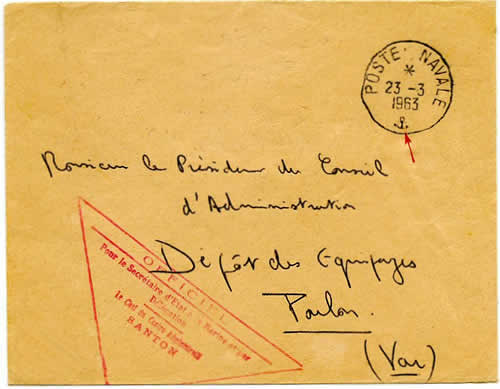 POSTE NAVALE
*
23 -3
1963
Monsieur le Président du Conseil
d'Administration
Dépôt des Equipages
Toulon.
(Var)
OFFICIEL
Pour le Secrétaire d'Etat à la Marine et par
Délégation
Le Chef du Centre Administratif